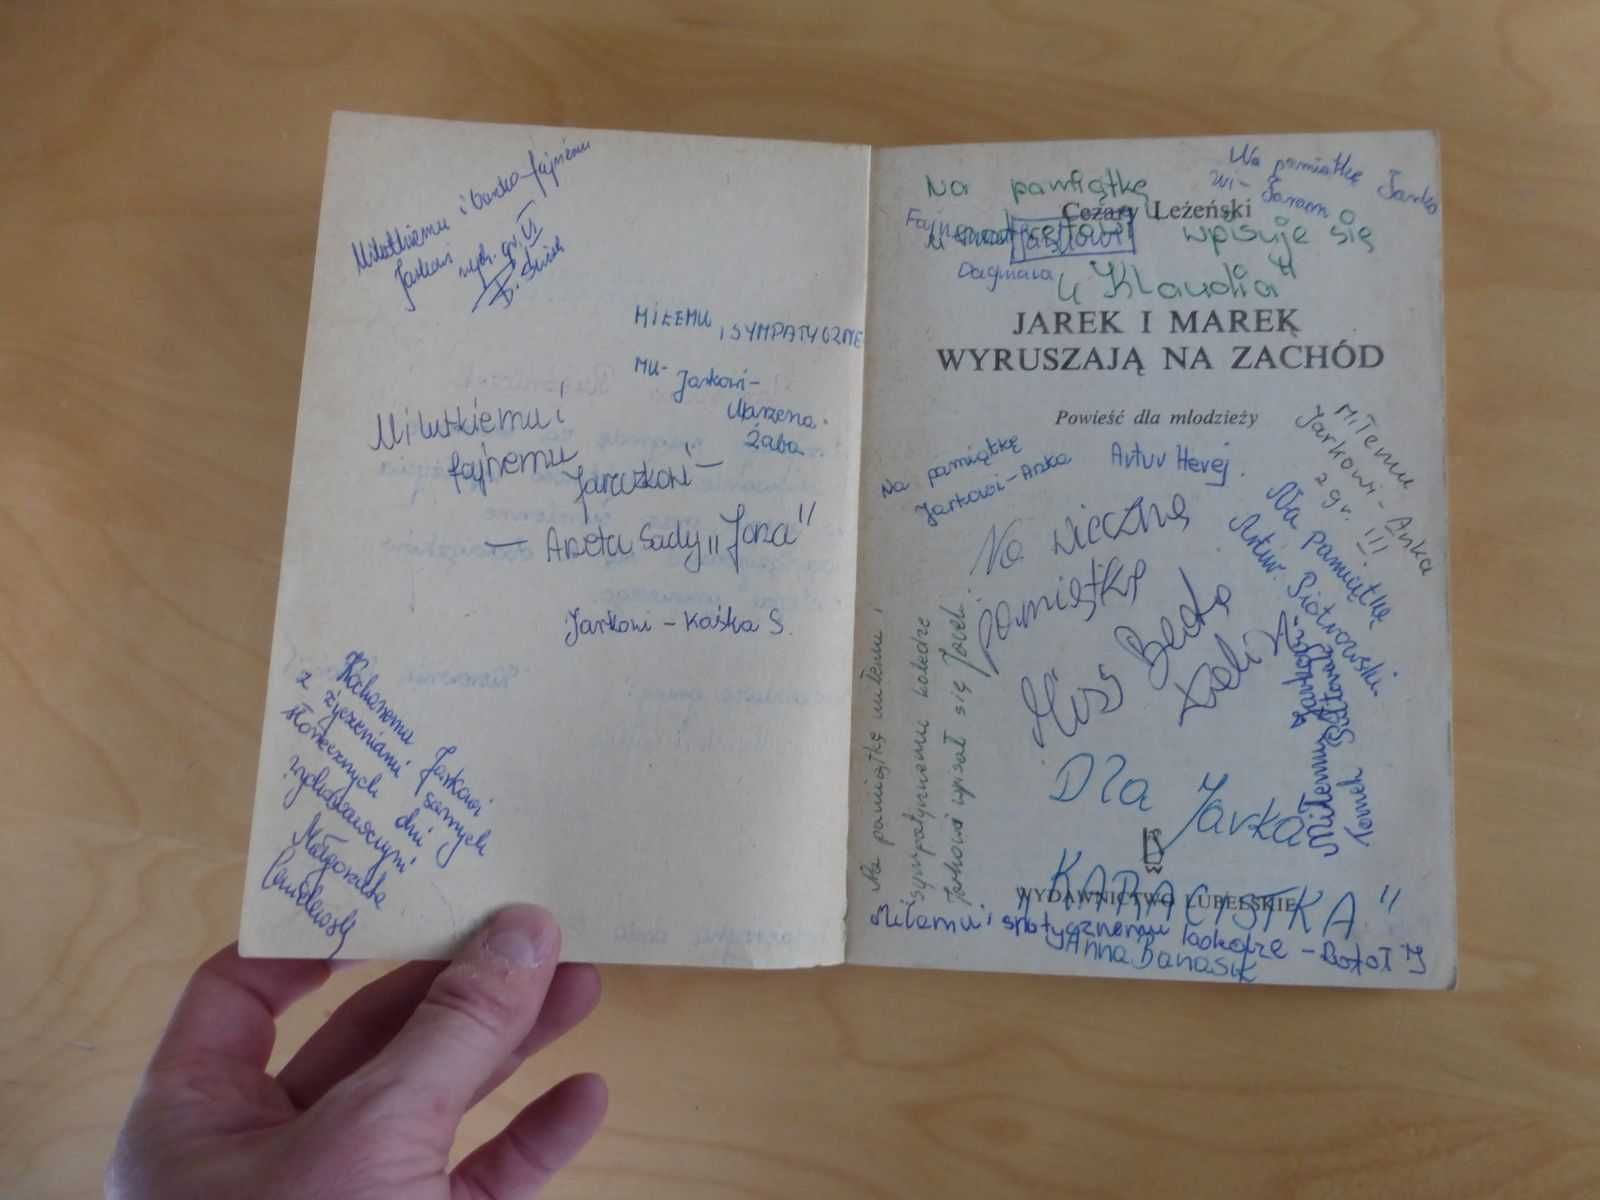 Milutkiemu i bardzo fajnemu
Jarkowi wych. gr. VI
MIŁEMU I SYMPATYCZNE
MU- Jarkowi-
Marzena
Żaba
Milutkiemu i
fajnemu
Jareczkowi -
— Aneta Sady "Jona"
Jarkowi - Kaśka S.
Kochanemu Jarkowi
z życzeniami samych
słonecznych dni
wychowawczyni
Małgorzata
Na pamiątkę Jarko
wi-
Na pamiątkę
Cezary Leżeński
wpisuje się
Dagmara
"Klaudia"
JAREK I MAREK
WYRUSZAJĄ NA ZACHÓD
Powieść dla młodzieży
Miłemu
Jarkowi - Anka
z gr. III
Na pamiątkę
Jarkowi - Anka
Artur Herej.
Na pamiątkę
Artur Piotrowski.
Na wieczną
pamiątkę
Miss Beata
Na pamiątkę miłemu i
sympatycznemu koledze
Jarkowi wpisał się Jacek.
Miłemu Jarkowi
Tomek
Dla Jarka
"KARACISTKA"
WYDAWNICTWO LUBELSKIE
Miłemu i spatycznemu koledze -
Anna Banasik